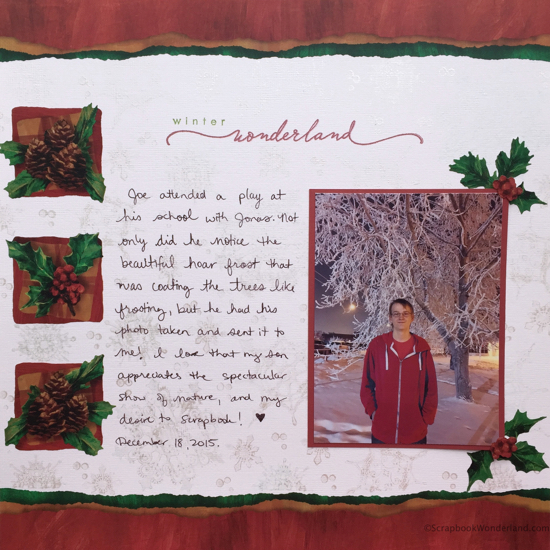 winter
wonderland
Joe attended a play at
his school with Jonas. Not
only did he notice the
beautiful hoar frost that
was coating the trees like
frosting, but he had his
photo taken and sent it to
me! I love that my son
appreciates the spectacular
show of nature, and my
desire to scrapbook! ♥
December 18, 2015.
©ScrapbookWonderland.com